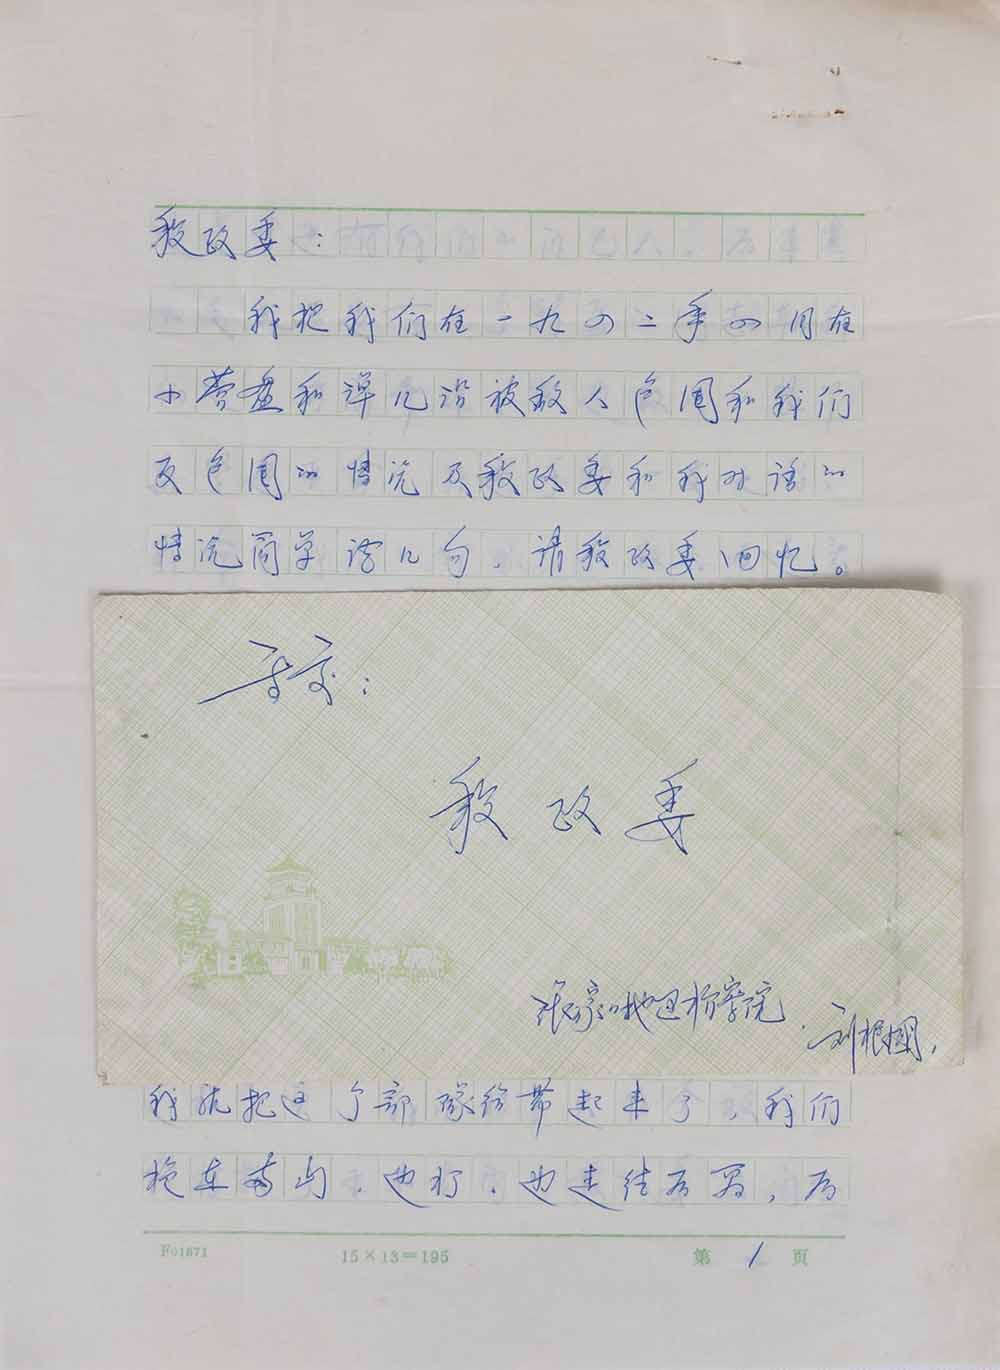 殷政委：
我把我们在一九四二年四月在
小营盘和单儿沿被敌人包围和我们
反包围的情况及殷政委和我对话的
情况简单谈几句，请殷政委回忆。
专交：
殷政委
张家口地区拘学院
刘根国，
我就把这个部队给带起来了，我们
抢东南山，也打，也走往右写，后
F01671 15×13=195 第1页